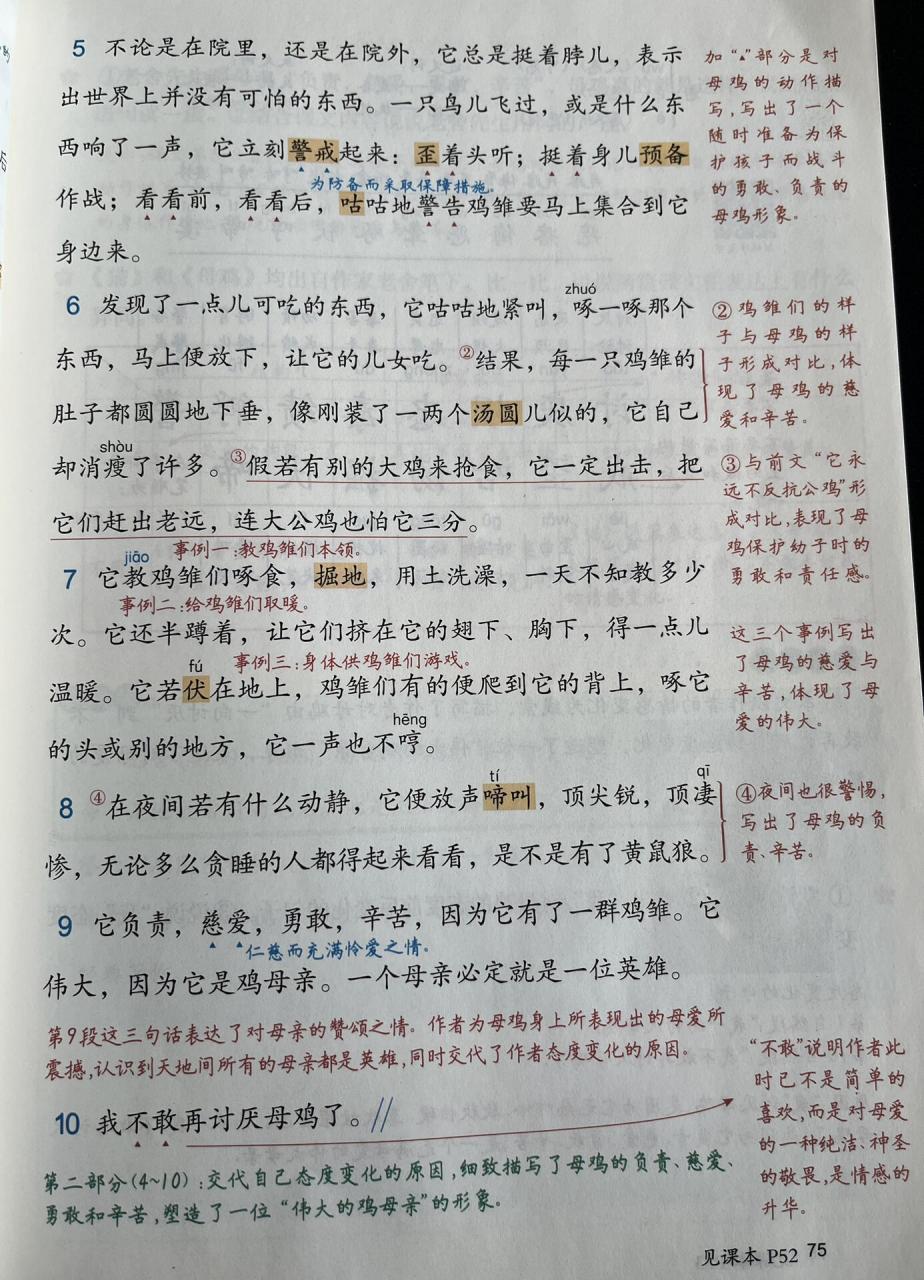 5 不论是在院里，还是在院外，它总是挺着脖儿，表示
出世界上并没有可怕的东西。一只鸟儿飞过，或是什么东
西响了一声，它立刻警戒起来：歪着头听；挺着身儿预备
为防备而采取保障措施。
作战；看看前，看看后，咕咕地警告鸡雏要马上集合到它
身边来。
加“▲”部分是对
母鸡的动作描
写，写出了一个
随时准备为保
护孩子而战斗
的勇敢、负责的
母鸡形象。
zhuó
6 发现了一点儿可吃的东西，它咕咕地紧叫，啄一啄那个
东西，马上便放下，让它的儿女吃。②结果，每一只鸡雏的
肚子都圆圆地下垂，像刚装了一两个汤圆儿似的，它自己
shòu
却消瘦了许多。③假若有别的大鸡来抢食，它一定出击，把
它们赶出老远，连大公鸡也怕它三分。
②鸡雏们的样
子与母鸡的样
子形成对比，体
现了母鸡的慈
爱和辛苦。
③与前文“它永
远不反抗公鸡”形
成对比，表现了母
鸡保护幼子时的
勇敢和责任感。
事例一：教鸡雏们本领。
jiāo
7 它教鸡雏们啄食，掘地，用土洗澡，一天不知教多少
事例二：给鸡雏们取暖。
次。它还半蹲着，让它们挤在它的翅下、胸下，得一点儿
fú 事例三：身体供鸡雏们游戏。
温暖。它若伏在地上，鸡雏们有的便爬到它的背上，啄它
hēng
的头或别的地方，它一声也不哼。
这三个事例写出
了母鸡的慈爱与
辛苦，体现了母
爱的伟大。
tí qī
8 ④在夜间若有什么动静，它便放声啼叫，顶尖锐，顶凄
惨，无论多么贪睡的人都得起来看看，是不是有了黄鼠狼。
④夜间也很警惕，
写出了母鸡的负
责、辛苦。
9 它负责，慈爱，勇敢，辛苦，因为它有了一群鸡雏。它
仁慈而充满怜爱之情。
伟大，因为它是鸡母亲。一个母亲必定就是一位英雄。
第9段这三句话表达了对母亲的赞颂之情。作者为母鸡身上所表现出的母爱所
震撼，认识到天地间所有的母亲都是英雄，同时交代了作者态度变化的原因。
10 我不敢再讨厌母鸡了。//
“不敢”说明作者此
时已不是简单的
喜欢，而是对母爱
的一种纯洁、神圣
的敬畏，是情感的
升华。
第二部分(4~10)：交代自己态度变化的原因，细致描写了母鸡的负责、慈爱、
勇敢和辛苦，塑造了一位“伟大的鸡母亲”的形象。
见课本 P52 75